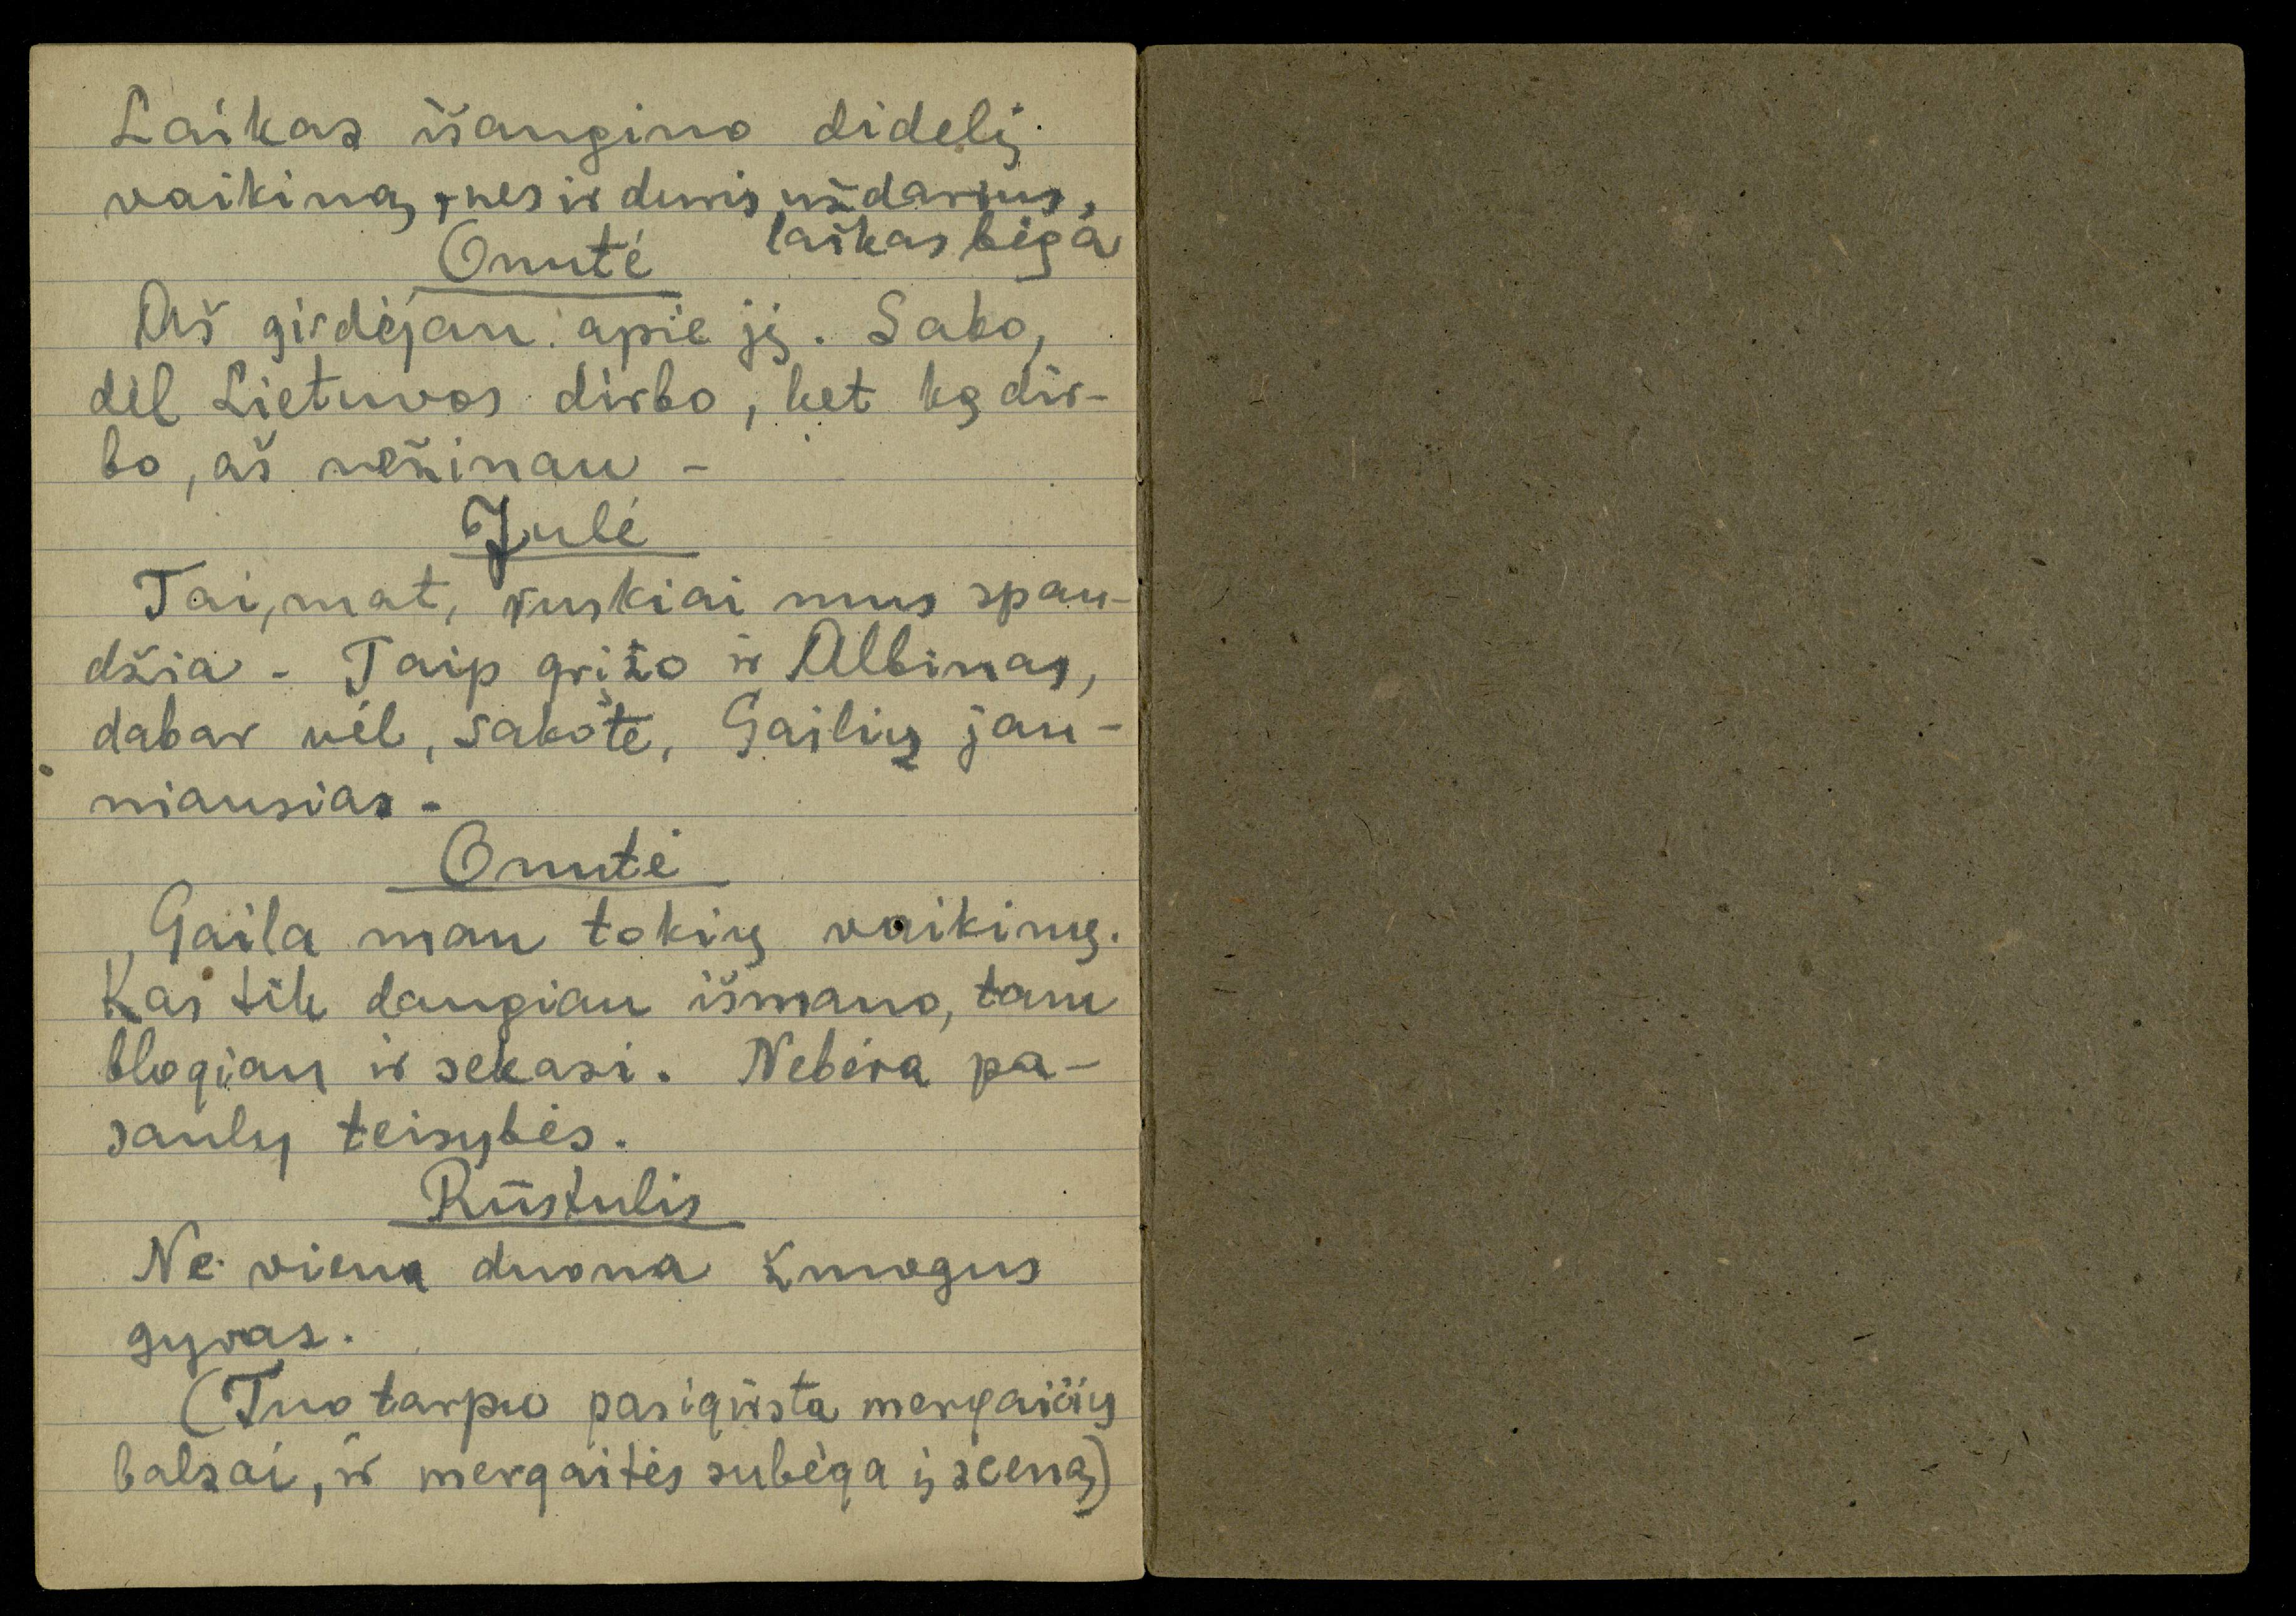 Laikas išaugino didelį
vaikiną, nes ir duris uždarius,
laikas bėga
Onutė
Aš girdėjau apie jį. Sako,
dėl Lietuvos dirbo, bet ką dir-
bo, aš nežinau -
Julė
Tai, mat, ruskiai mus spau-
džia - Taip grįžo ir Albinas,
dabar vėl, sakote, Gailių jau-
niausias -
Onutė
Gaila man tokių vaikinų.
Kas tik daugiau išmano, tam
blogiau ir sekasi. Nebėra pa-
sauly teisybės.
Rūstulis
Ne viena duona žmogus
gyvas.
(Tuo tarpu pasigirsta mergaičių
balsai, ir mergaitės subėga į sceną)